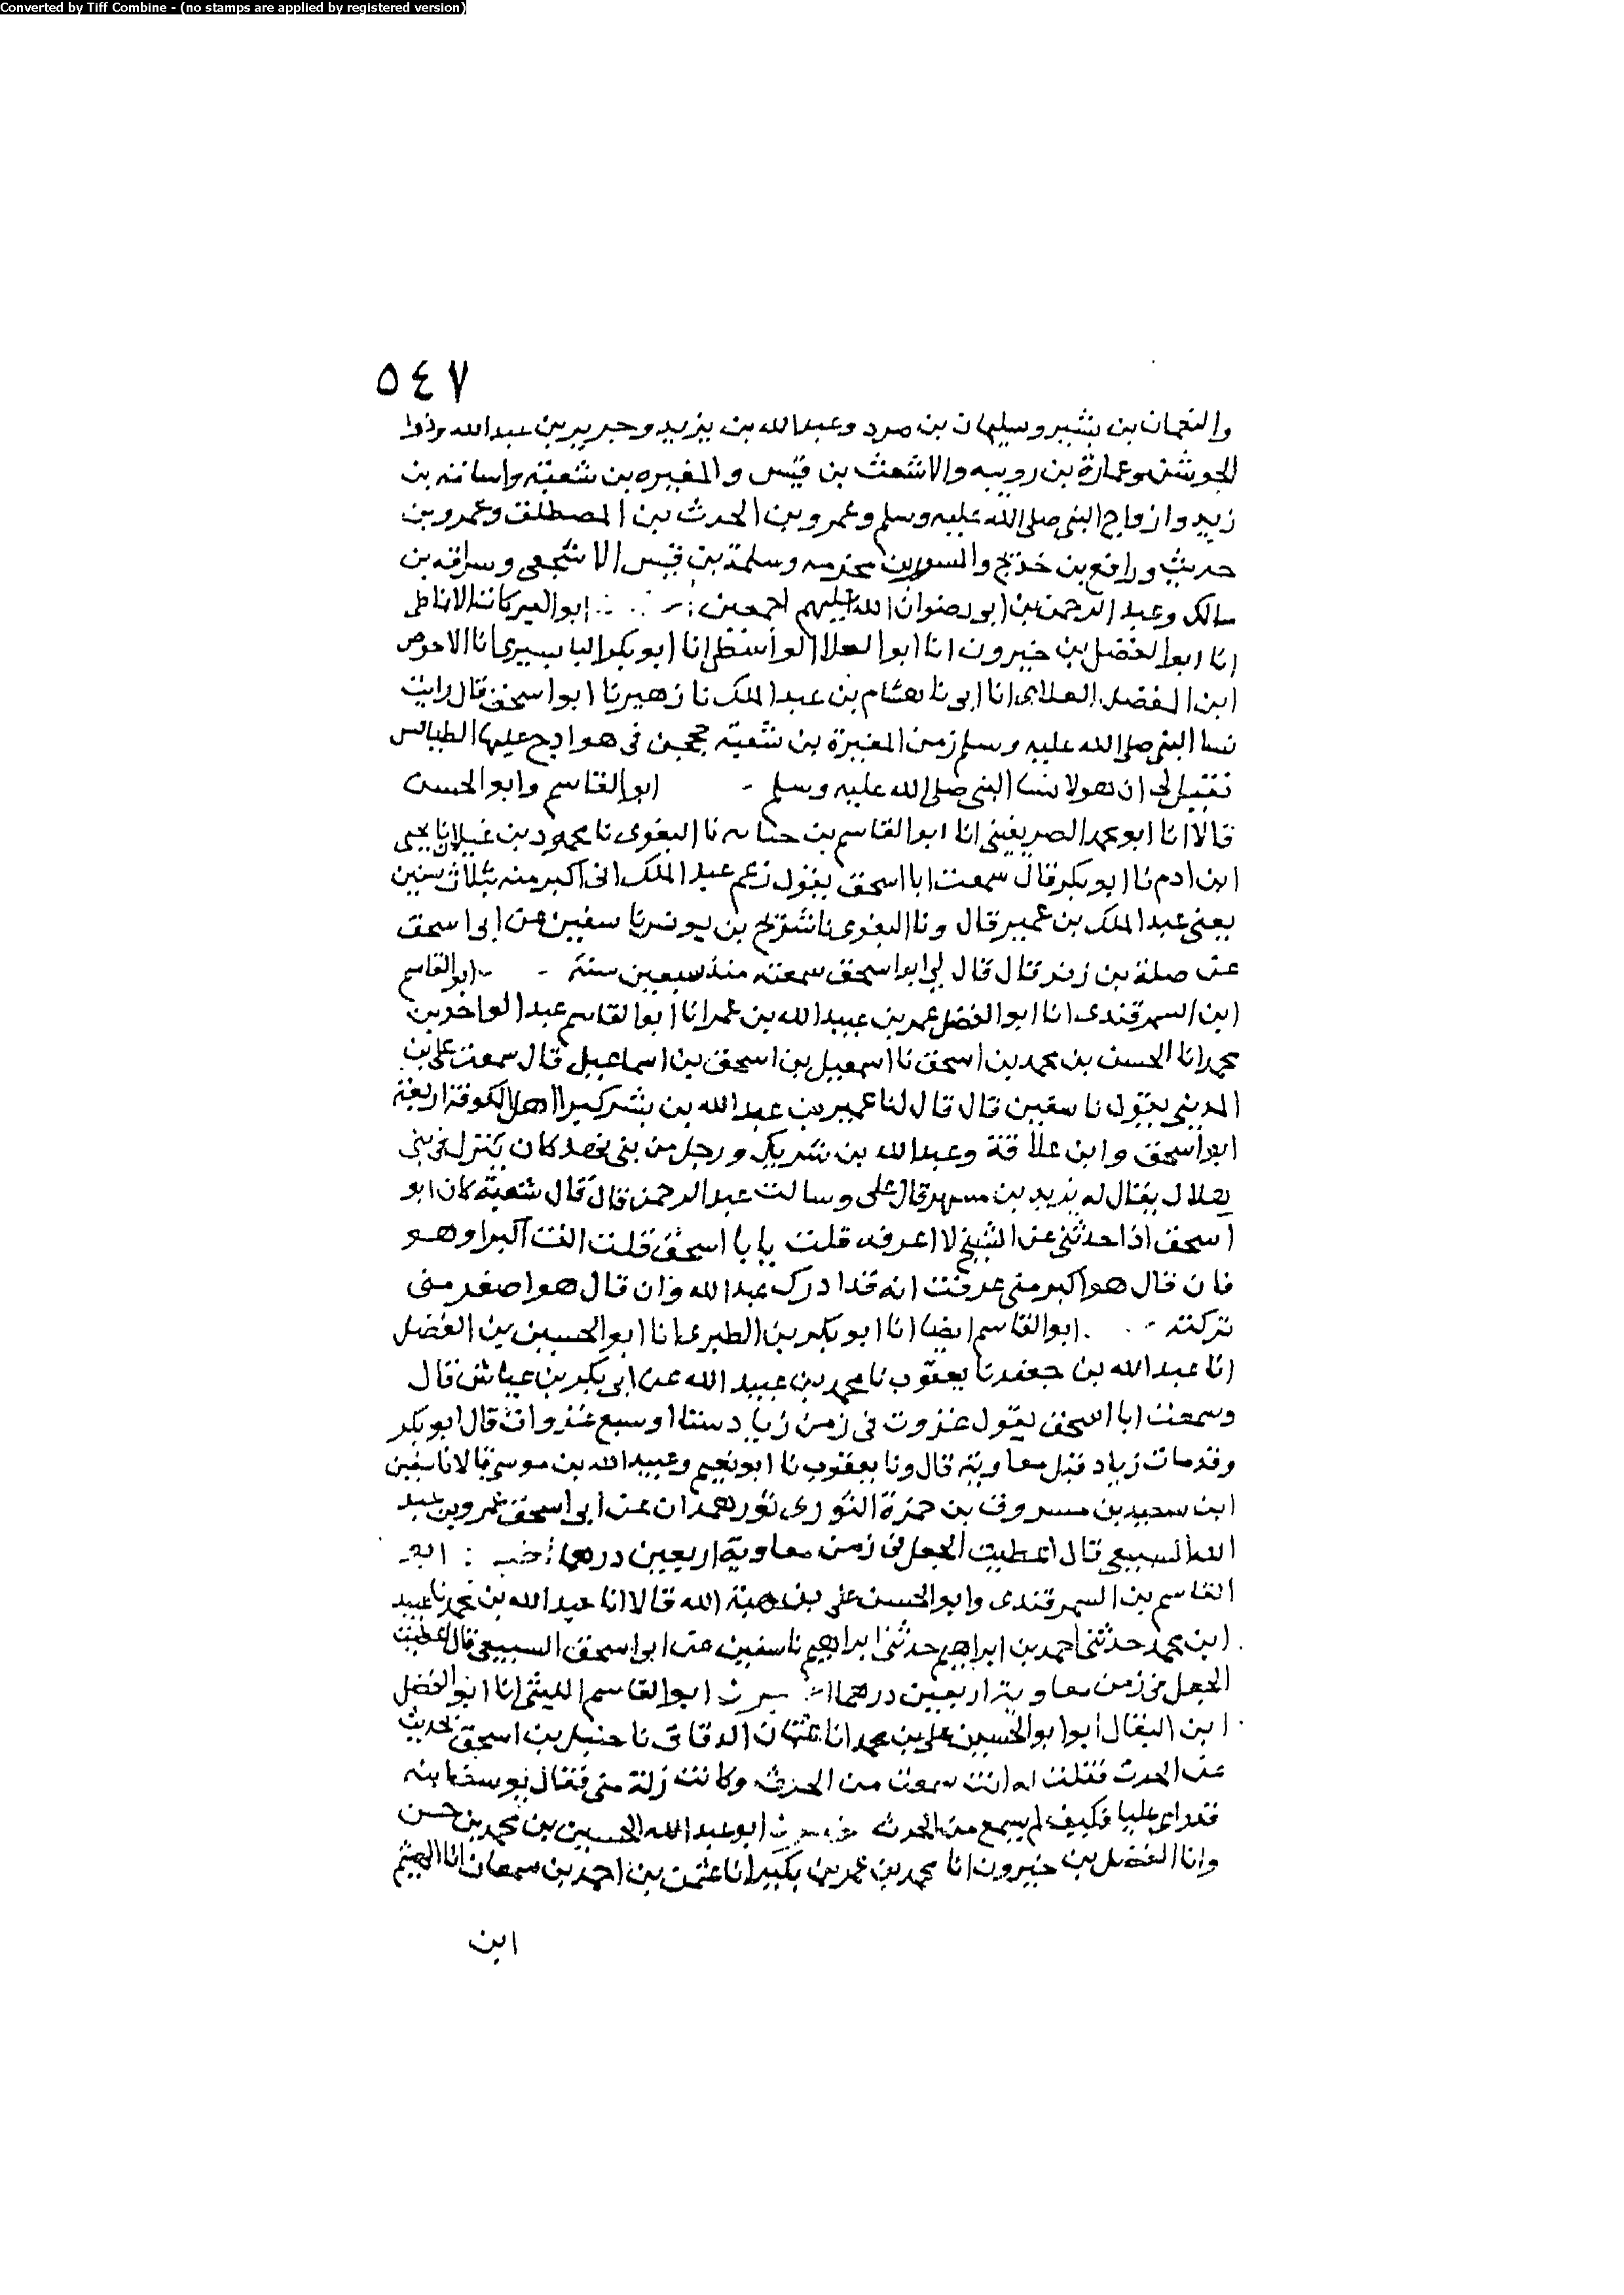 Converted by Tiff Combine - (no stamps are applied by registered version)
٥٤٧
والنعمان بن بشير وسليمان بن صرد وعبد الله بن يزيد وجرير بن عبد الله وذوا
الجوشن وعمارة بن رويبه والاشعث بن قيس والمغيره بن شعبة واسامة بن
زيد وازواج النبي صلى الله عليه وسلم وعمرو بن الحرث بن المصطلق وعمرو بن
حريث ورافع بن خديج والمسور بن مخرمه وسلمة بن قيس الاشجعي وسراقه بن
مالك وعبد الرحمن بن ابو رضوان الله عليهم اجمعين ابو البركات الانماطي
انا ابوا الفضل بن خيرون انا ابوا العلا الواسطي انا ابو بكر البابسيري انا الاحوص
ابن الفضل العلابي انا ابي نا هشام بن عبد الملك نا زهير نا ابوا اسحق قال رايت
نسا النبي صلى الله عليه وسلم زمن المغيرة بن شعبة حججن في هوادج عليها الطيالس
فقيل لي ان هولا نسا النبي صلى الله عليه وسلم ابوا القاسم وابو الحسن
قالا انا ابو محمد الصريفيني انا ابوا القاسم بن حبابه نا البغوي نا محمود بن غيلان نا يحيى
ابن ادم نا ابو بكر قال سمعت ابا اسحق يقول زعم عبد الملك اني اكبر منه بثلاث سنين
يعني عبد الملك بن عمير قال ونا البغوي نا شريح بن يونس نا سفين عن ابي اسحق
عن صلة بن زفر قال قال لي ابوا اسحق سمعته منذ سبعين سنة ابو القاسم
ابن السمرقندي انا ابوا الفضل عمر بن عبيد الله بن عمر انا ابوا القاسم عبد الواحد بن
محمد انا الحسن بن محمد بن اسحق نا اسمعيل بن اسحق بن اسماعيل قال سمعت علي بن
المديني يقول نا سفين قال قال لنا عمير بن عبد الله بن بشر كبرا اهل الكوفة اربعة
ابوا اسحق وابن علاقة وعبد الله بن شريك ورجل من بني نهد كان ينزل في بني
هلال يقال له يزيد بن مسهر قال علي وسالت عبد الرحمن قال قال شعبة كان ابو
اسحق اذا حدثني عن الشيخ لا اعرفه قلت يا با اسحق قلت انت اكبر او هو
فان قال هو اكبر مني عرفت انه قد ادرك عبد الله وان قال هو اصغر مني
تركته ابوا القاسم ايضا انا ابو بكر بن الطبري انا ابو الحسين بن الفضل
انا عبد الله بن جعفر نا يعقوب نا محمد بن عبيد الله عن ابي بكر بن عياش قال
وسمعت ابا اسحق يقول غزوت في زمن زياد ستا او سبع غزوات قال ابو بكر
وقد مات زياد قبل معاوية قال ونا يعقوب نا ابو نعيم وعبيد الله بن موسى قالا نا سفين
ابن سعيد بن مسروق بن حمزة الثوري ثور همدان عن ابي اسحق عمرو بن عبد
الله السبيعي قال اعطيت الجعل في زمن معاوية اربعين درهما
القاسم بن السمرقندي وابو الحسن علي بن هبة الله قالا انا عبد الله بن محمد نا عبيد
ابن محمد حدثني احمد بن ابراهيم حدثني ابراهيم نا سفين عن ابوا اسحق السبيعي قال اعطيت
الجعل في زمن معاوية اربعين درهما ابوا القاسم الليثي انا ابو الفضل
ابن البقال ابوا ابو الحسين علي بن محمد انا عثمان الدقاق نا حنبل بن اسحق بحديث
عن الحرث فقلت له انت سمعت من الحرث وكانت زلة مني فقال يوسف ابنه
قد راى عليا فكيف لم يسمع من الحرث ابو عبد الله الحسين بن محمد بن حسن
وانا الفضل بن خيرون انا محمد بن عمر بن بكير انا عثمن بن احمد بن سمعان انا الهيثم
ابن